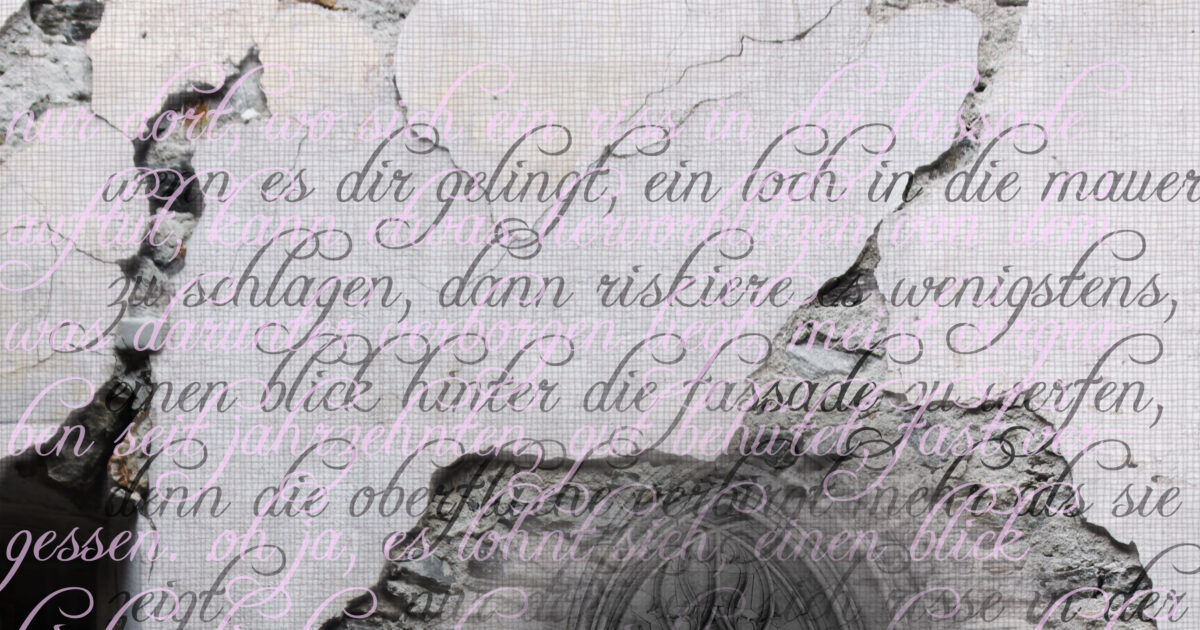 nur dort, wo sich ein riss in der fassade
wenn es dir gelingt, ein loch in die mauer
auftut, kann etwas hervorblitzen von dem,
zu schlagen, dann riskiere es wenigstens,
was darunter verborgen liegt, meist vergra-
einen blick hinter die fassade zu werfen,
ben seit jahrzehnten, gut behütet, fast ver-
denn die oberfläche verbirgt mehr als sie
gessen. oh ja, es lohnt sich, einen blick
zeigt. in der